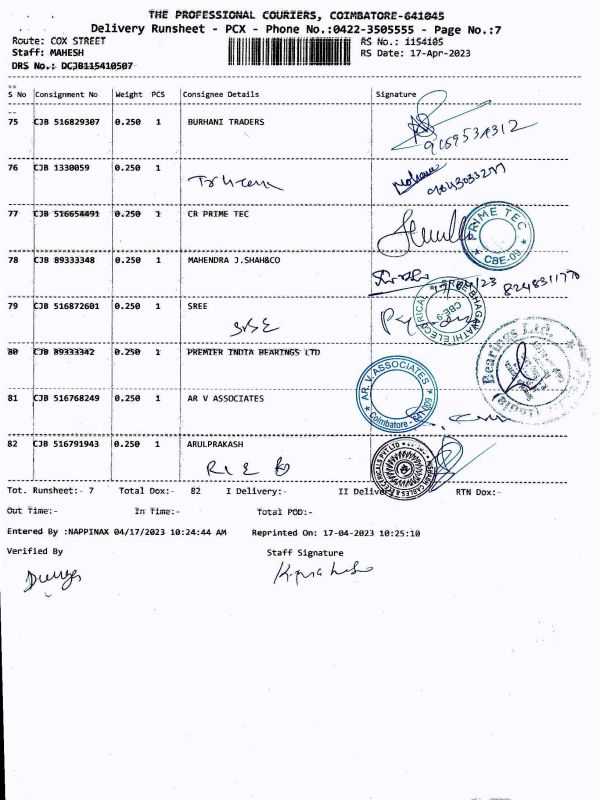 THE PROFESSIONAL COURIERS, COIMBATORE-641045
Delivery Runsheet - PCX - Phone No.:0422-3505555 - Page No.:7
Route: COX STREET RS No.: 1154105
Staff: MAHESH RS Date: 17-Apr-2023
DRS No.: DCJB115410507
S No Consignment No Weight PCS Consignee Details Signature
75 CJB 516829307 0.250 1 BURHANI TRADERS
76 CJB 1330059 0.250 1
77 CJB 516654491 0.250 1 CR PRIME TEC
PRIME TEC
CBE-09
78 CJB 89333348 0.250 1 MAHENDRA J.SHAH&CO
8248311770
79 CJB 516872601 0.250 1 SREE
SBE
SREE BHAGAVATHI ELECTRICAL
CBE-9
80 CJB 89333342 0.250 1 PREMIER INDIA BEARINGS LTD
Bearings Ltd.
81 CJB 516768249 0.250 1 AR V ASSOCIATES
AR. V. ASSOCIATES
Coimbatore
82 CJB 516791943 0.250 1 ARULPRAKASH
CABLES & ELECTRICALS PVT LTD
Tot. Runsheet:- 7 Total Dox:- 82 I Delivery:- II Delivery RTN Dox:-
Out Time:- In Time:- Total POD:-
Entered By :NAPPINAX 04/17/2023 10:24:44 AM Reprinted On: 17-04-2023 10:25:10
Verified By Staff Signature